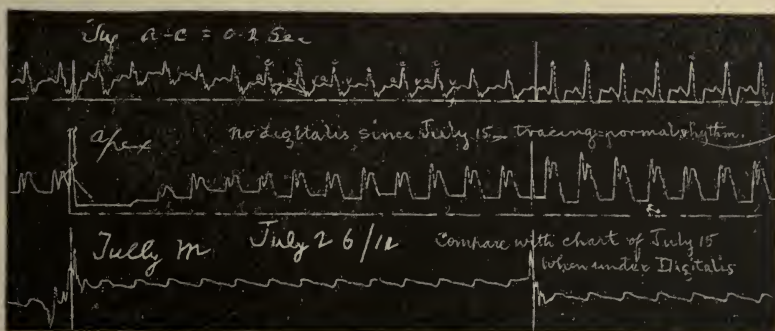 Jug a-c = 0.2 Sec
a c v a c v a c a c v c
apex
No digitalis since July 15_ tracing normal rhythm.
Tully M July 26/12
Compare with chart of July 15
when under Digitalis